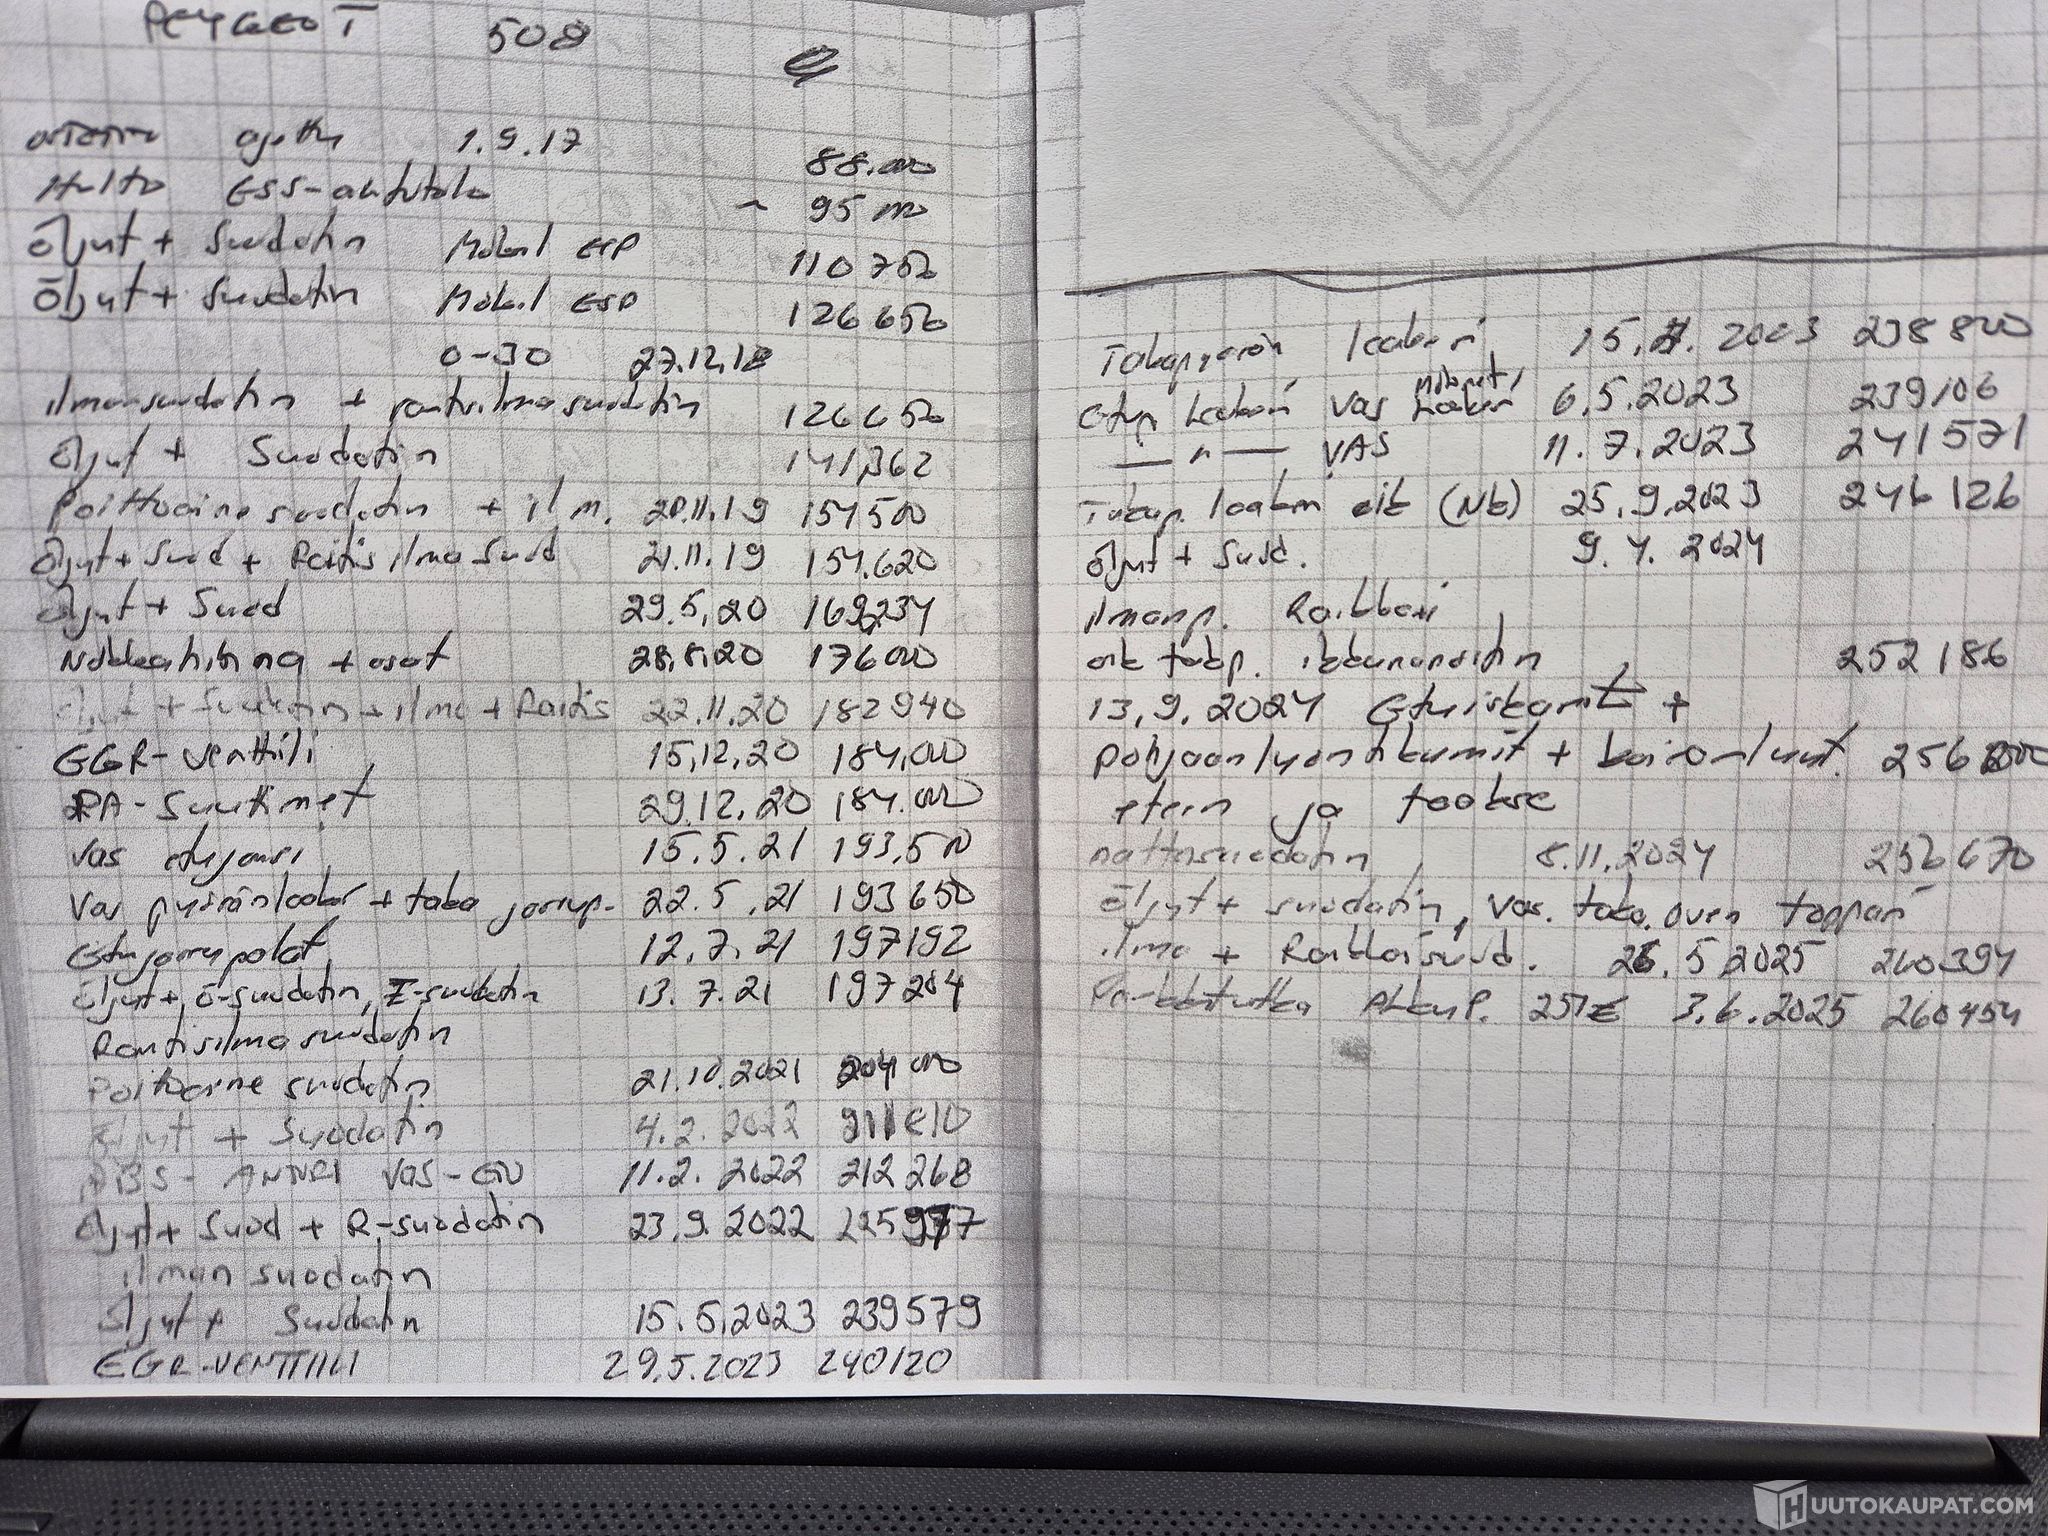 PEYGEOT 508
ajettu 1.9.17 88.000
Huolto ESS-autotalo ~ 95 000
Öljyt + Suodatin Mobil ESP 110 750
Öljyt + Suodatin Mobil ESP 126 650
0-30 27.12.18
ilmansuodatin + raitisilmasuodatin 126 650
Öljyt + Suodatin 141362
Polttoainesuodatin + ilm. 20.11.19 154500
Öljyt + Suod + Raitis ilma Suod 21.11.19 154.620
Öljyt + Suod 29.5.20 169234
Nokkahihna + osat 28.8.20 176000
Öljyt + Suodatin + ilma + Raitis 22.11.20 182940
EGR-venttiili 15.12.20 184.000
PA-Suuttimet 29.12.20 184.000
Vas etujousi 15.5.21 193.500
Vas pyöränlaaker + taka jarrup. 22.5.21 193650
Etujarrupalat 12.7.21 197192
Öljyt+, Ö-suodatin, I-suodatin 13.7.21 197204
Raitisilmasuodatin
Polttoaine suodatin 21.10.2021 204 000
Öljyt + Suodatin 4.2.2022
ABS-ANTURI VAS-ETU 11.2.2022 212 268
Öljyt + Suod + R-suodatin 23.9.2022
ilman suodatin
Öljyt + Suodatin 15.5.2023 239579
EGR-VENTTIILI 29.5.2023 240120
Takapyörän laakeri 2003 238800
Etup laakeri vas 6.5.2023 239106
— " — VAS 11.7.2023 241571
Takap. laakeri oik (Nk) 25.9.2023 246126
Öljyt + Suod. 9.4.2024
ilmanp. Raikkari
oik takap. ikkunanostin 252186
13.9.2024 Etuiskarit +
pohjaanlyöntikumit + koiranluut. 256 000
eteen ja taakse
8.11.2024 256670
Öljyt + suodatin, vas. taka oven toppari
ilma + Raikkaisuod. 26.5.2025 260394
257€ 3.6.2025 260454
HUUTOKAUPAT.COM